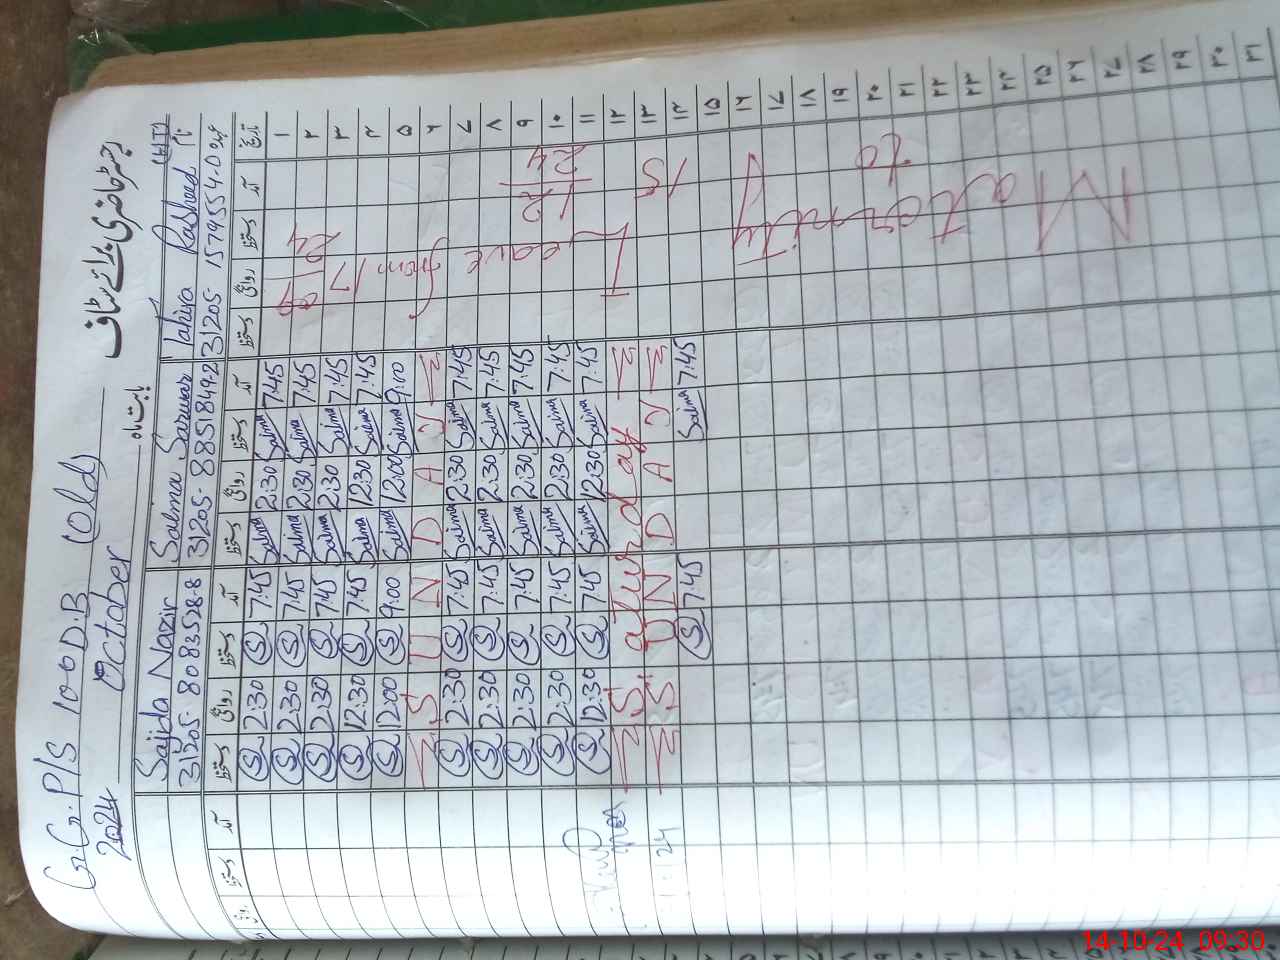 G.G.P/S 100 D.B (old) رجسٹر حاضری برائے سٹاف
2024 October بابت ماہ
Sajida Nazir Salma Sarwar Tahira Rasheed (HT) نام
31205-8083528-8 31205-8851849-2 31205-1579554-0 عہدہ
روانگی دستخط آمد دستخط روانگی دستخط آمد دستخط روانگی دستخط آمد دستخط روانگی دستخط آمد تاریخ
S 2:30 S 7:45 Salma 2:30 Salma 7:45 ۱
S 2:30 S 7:45 Salma 2:30 Salma 7:45 ۲
S 2:30 S 7:45 Salma 2:30 Salma 7:45 ۳
S 12:30 S 7:45 Salma 12:30 Salma 7:45 ۴
S 12:00 S 9:00 Salma 12:00 Salma 9:00 ۵
SUNDAY ۶
S 2:30 S 7:45 Salma 2:30 Salma 7:45 ۷
S 2:30 S 7:45 Salma 2:30 Salma 7:45 ۸
S 2:30 S 7:45 Salma 2:30 Salma 7:45 ۹
S 2:30 S 7:45 Salma 2:30 Salma 7:45 ۱۰
S 12:30 S 7:45 Salma 12:30 Salma 7:45 ۱۱
Saturday ۱۲
SUNDAY ۱۳
S 7:45 Salma 7:45 ۱۴
۱۵
۱۶
۱۷
۱۸
۱۹
۲۰
۲۱
۲۲
۲۳
۲۴
۲۵
۲۶
۲۷
۲۸
۲۹
۳۰
۳۱
17/09/24
from
Leave
12/24
15
Maternity
to
14-10-24 09:30